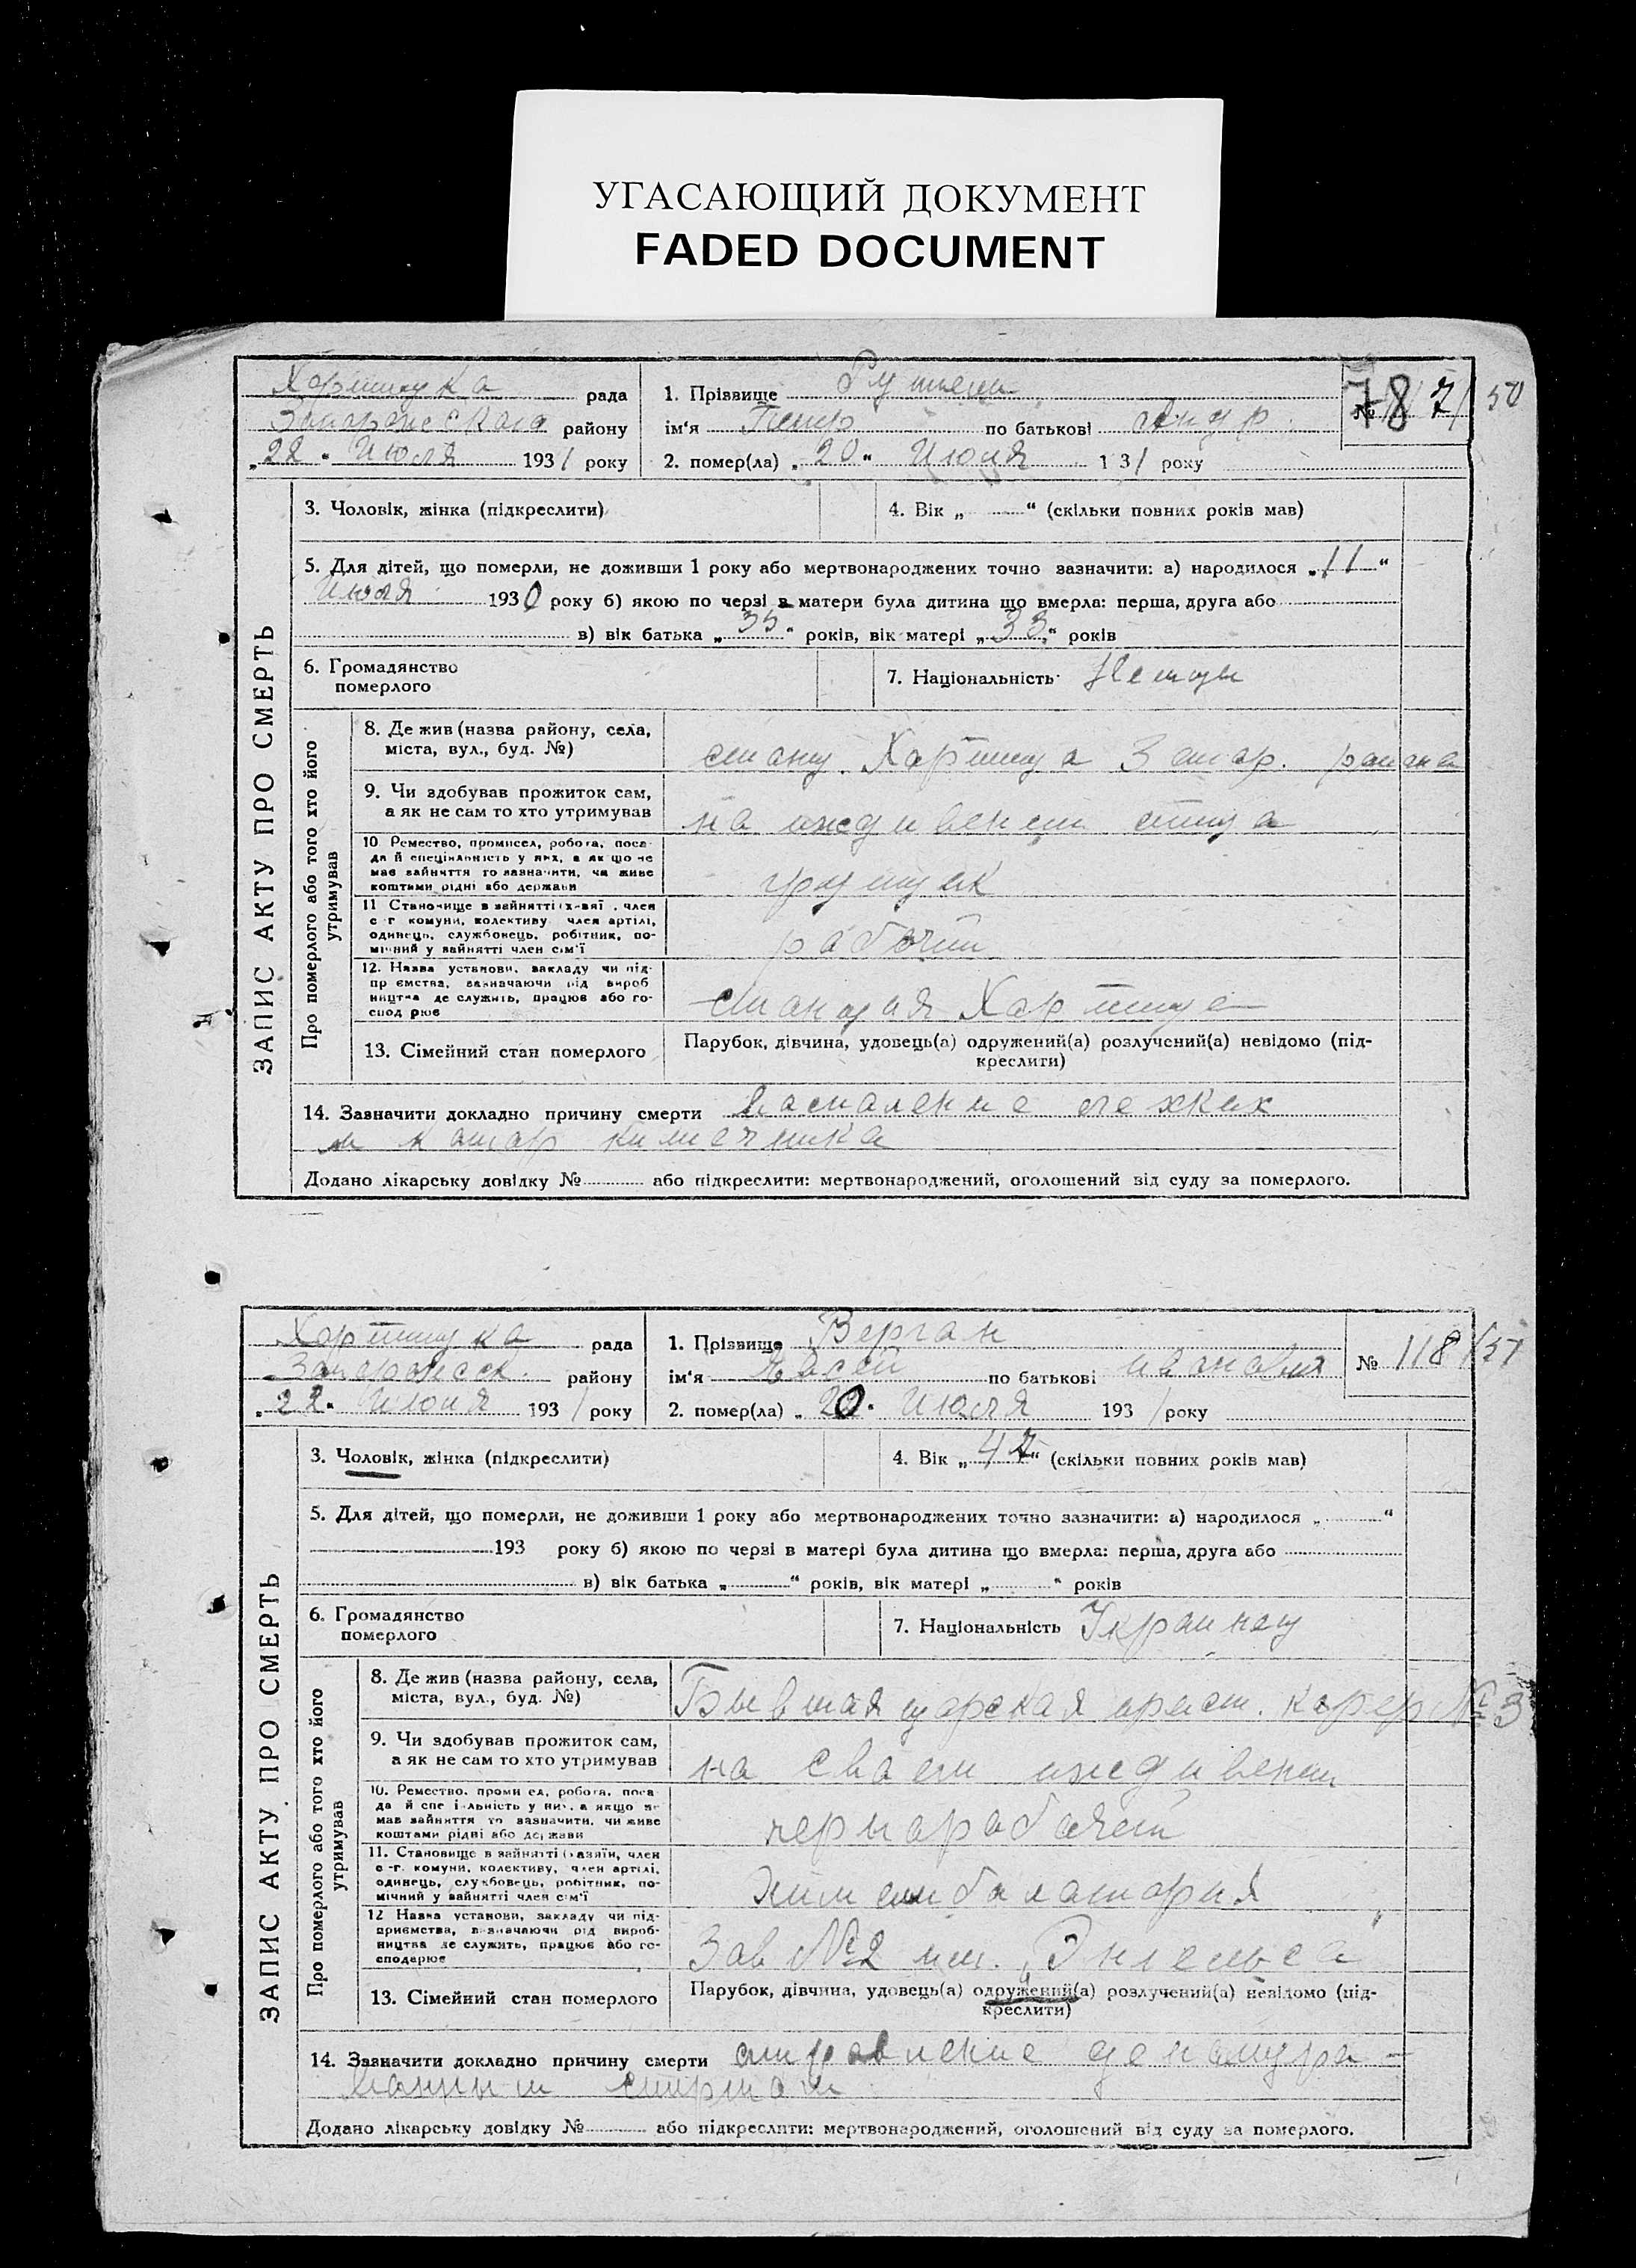 УГАСАЮЩИЙ ДОКУМЕНТ
FADED DOCUMENT
рада
району
„22“ Июля 1931 року
1. Прізвище
ім‘я по батькові
2. помер(ла) „20“ Июля 1 31 року
№
ЗАПИС АКТУ ПРО СМЕРТЬ
3. Чоловік, жінка (підкреслити)
4. Вік „ “ (скільки повних років мав)
5. Для дітей, що померли, не доживши 1 року або мертвонароджених точно зазначити: а) народилося „11“
Июля 1930 року б) якою по черзі в матери була дитина що вмерла: перша, друга або
в) вік батька „35“ років, вік матері „33“ років
6. Громадянство
померлого
7. Національність
Про померлого або того хто його
утримував
8. Де жив (назва району, села,
міста, вул., буд. №)
9. Чи здобував прожиток сам,
а як не сам то хто утримував
на иждивении отца
10 Ремество, промисел, робота, поса-
да й спеціяльність у них, а якщо не
має зайняття то зазначити, чи живе
коштами рідні або держави
грузчик
11 Становище в зайнятті
с г комуни, колективу член артілі,
одинець, службовець, робітник, по-
мічний у зайнятті член сім‘ї
рабочий
12. Назва установи, закладу чи під-
пр ємства, зазначаючи рід вироб
ництва де служить, працює або го-
спод рює
станция Хортица
13. Сімейний стан померлого
Парубок, дівчина, удовець(а) одружений(а) розлучений(а) невідомо (під-
креслити)
14. Зазначити докладно причину смерти васпаление легких
и катар кишечника
Додано лікарську довідку № або підкреслити: мертвонароджений, оголошений від суду за померлого.
рада
району
„22“ Июля 193/ року
1. Прізвище Верган
ім‘я по батькові
2. помер(ла) „20“ Июля 193/ року
№ 118/31
ЗАПИС АКТУ ПРО СМЕРТЬ
3. Чоловік, жінка (підкреслити)
4. Вік „47“ (скільки повних років мав)
5. Для дітей, що померли, не доживши 1 року або мертвонароджених точно зазначити: а) народилося „ “
193 року б) якою по черзі в матері була дитина що вмерла: перша, друга або
в) вік батька „ “ років, вік матері „ “ років
6. Громадянство
померлого
7. Національність Украинец
Про померлого або того хто його
утримував
8. Де жив (назва району, села,
міста, вул., буд. №)
Бывшая царская №3
9. Чи здобував прожиток сам,
а як не сам то хто утримував
на сваем иждивении
10. Ремество, проми ел, робота, поса-
да й спе і-льність у них, а якщо не
має зайняття то зазначити, чи живе
коштами рідні або держави
чернарабочий
11. Становище в зайнятті (хазяїн, член
с -г. комуни, колективу, член артілі,
одинець, службовець, робітник, по-
мічний у зайнятті член сім‘ї
12 Назва установи, закладу чи під-
приємства, зазначаючи рід вироб-
ництва де служить, працює або го-
сподарює
Зав №2 им. Энгельса
13. Сімейний стан померлого
Парубок, дівчина, удовець(а) одружений(а) розлучений(а) невідомо (під-
креслити)
14. Зазначити докладно причину смерти отравление денатура-
ванным спиртам
Додано лікарську довідку № або підкреслити: мертвонароджений, оголошений від суду за померлого.